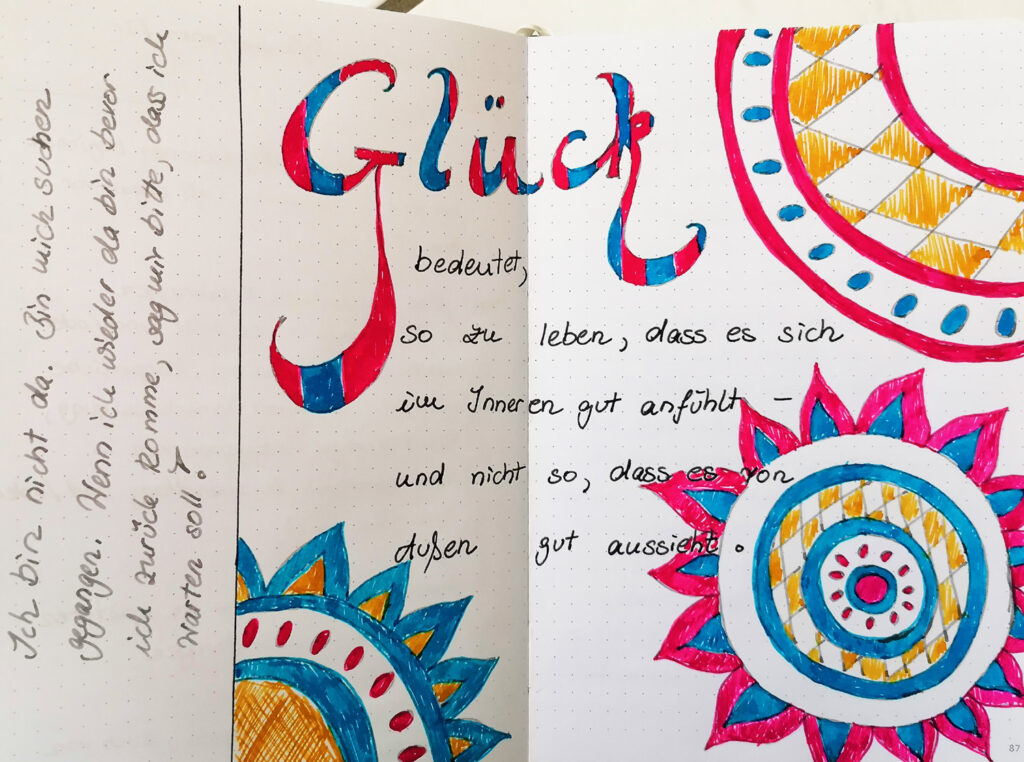 Ich bin nicht da. Bin mich suchen
gegangen. Wenn ich wieder da bin bevor
ich zurück komme, sag mir bitte, dass ich
warten soll?
Glück
bedeutet,
so zu leben, dass es sich
im Inneren gut anfühlt –
und nicht so, dass es von
Außen gut aussieht.
87